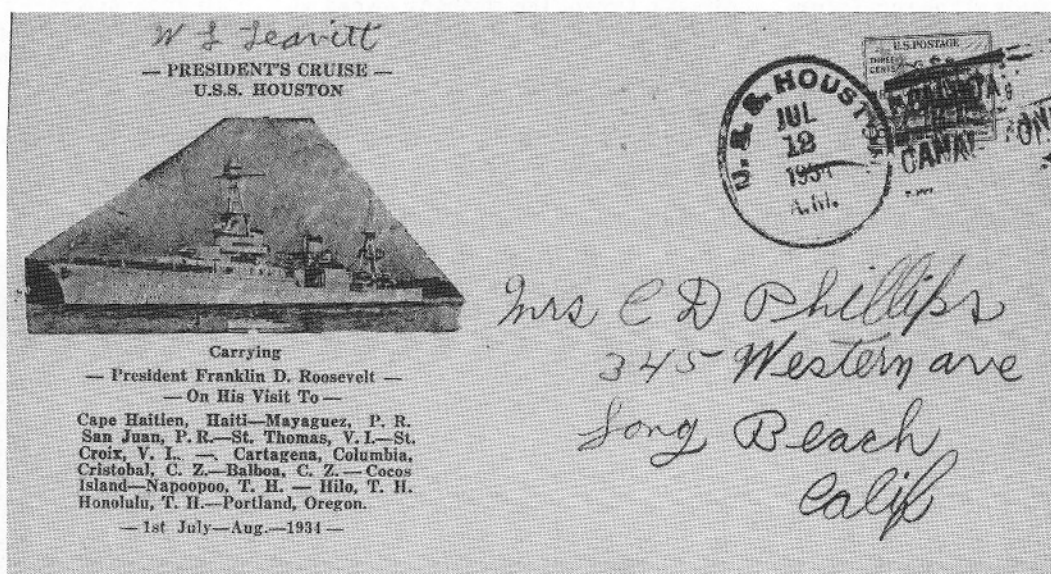 W L Leavitt
— PRESIDENT'S CRUISE —
U.S.S. HOUSTON
Carrying
— President Franklin D. Roosevelt —
— On His Visit To —
Cape Haitien, Haiti—Mayaguez, P. R.
San Juan, P.R.—St. Thomas, V. I.—St.
Croix, V. I.. —. Cartagena, Columbia,
Cristobal, C. Z.—Balboa, C. Z. — Cocos
Island—Napoopoo, T. H. — Hilo, T. H.
Honolulu, T. H.—Portland, Oregon.
— 1st July—Aug.—1934 —
U.S. POSTAGE
THREE
CENTS
U. S. S. HOUSTON
JUL
12
1934
A.M.
CANAL
Mrs C D Phillips
345 Western ave
Long Beach
Calif